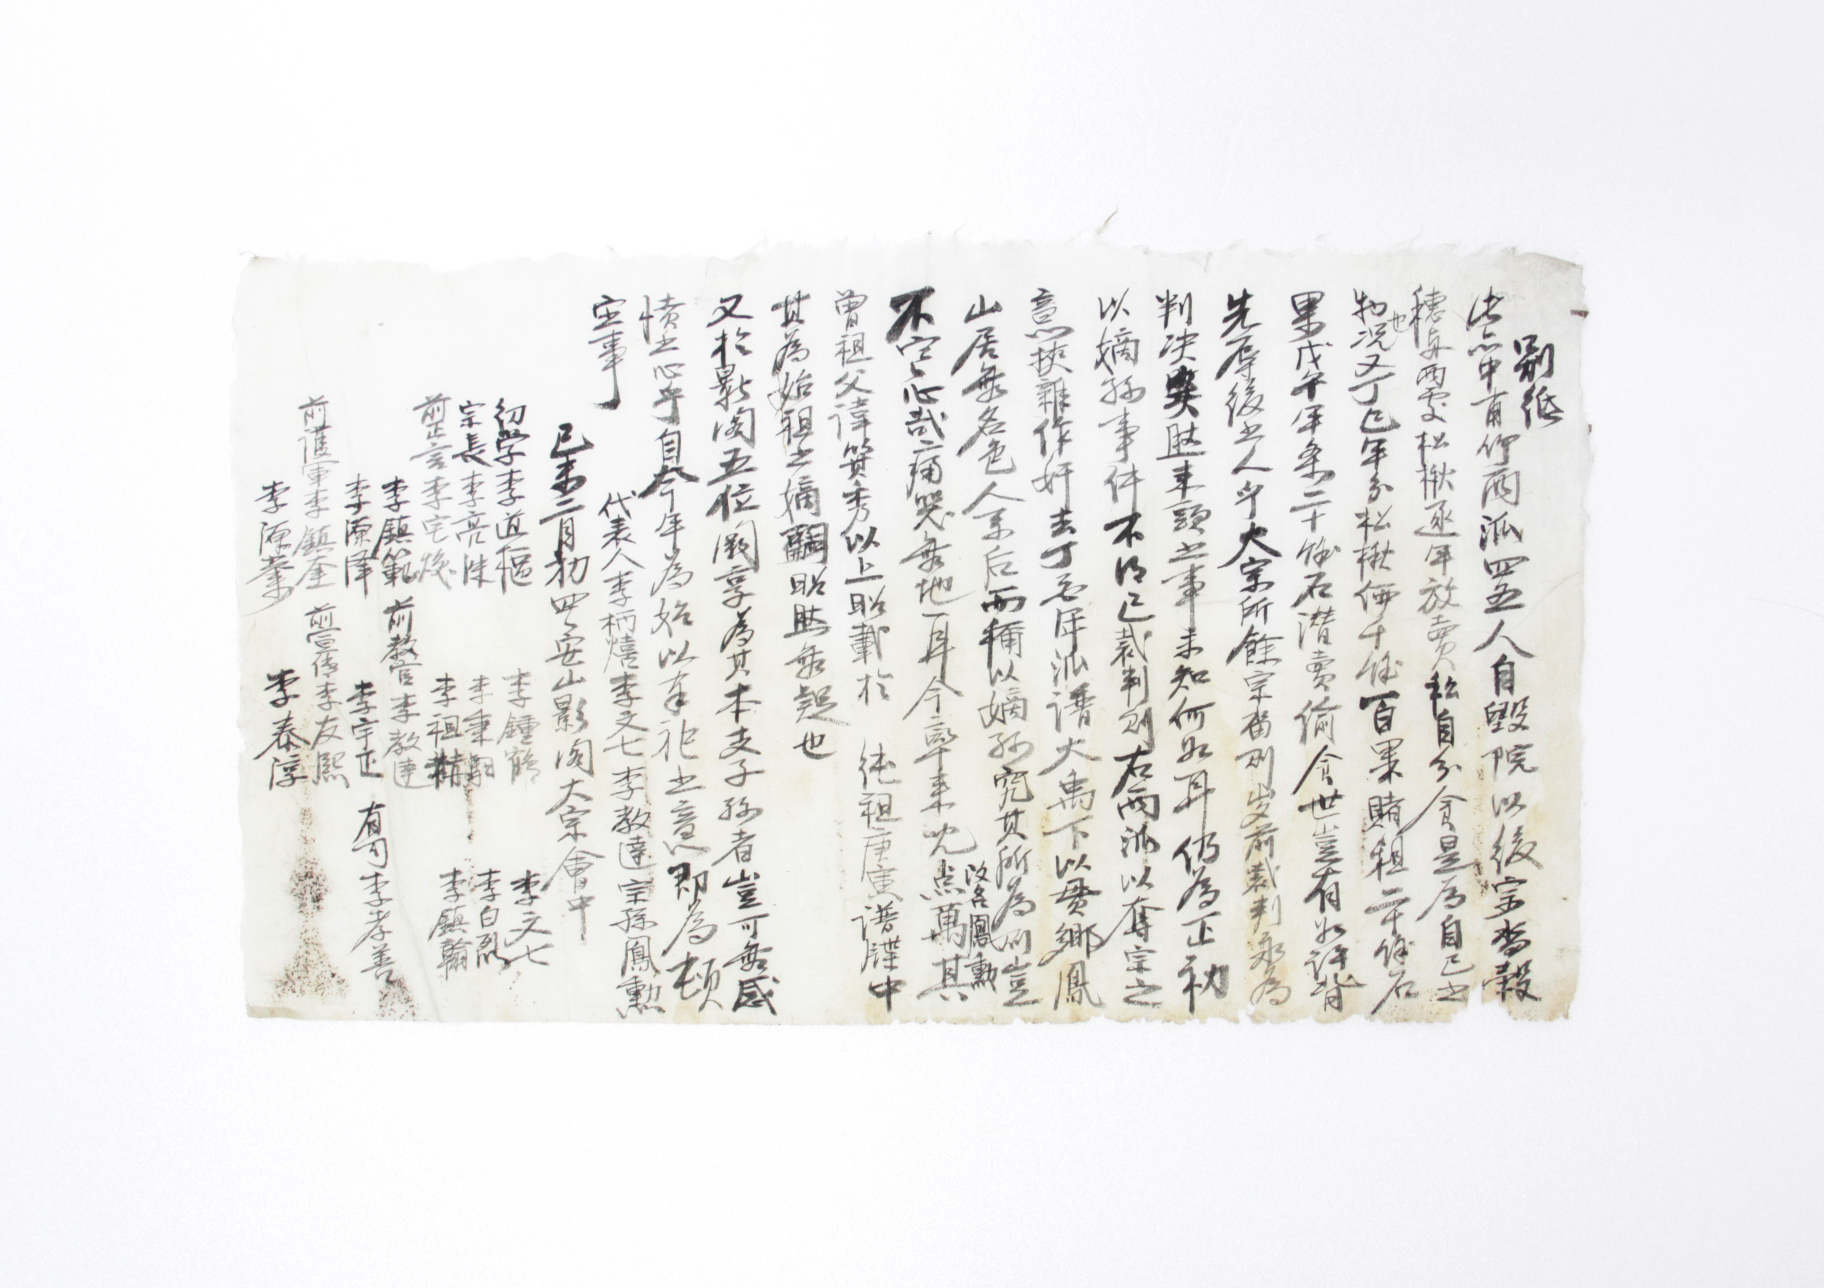 別紙
法点中有仰両派四五人自毀院以後宗畓穀
穂与両處松楸逐年放賣私自分食是為自己之
物况也又丁巳年分松楸価千余百果賭租二千余石
果戊午年条二十余石潜賣偷食世豈有如許背
先辱後之人乎大宗所餘宗畓則歳前裁判永為
判决矣然来頭之事未知何如耳仍為正初
以嫡孫事件不得已裁判則右両派以奪宗之
意挾雜作奸去丁 年派譜大禹下以貫鄉鳳
山居無名色人系后而稱以嫡孫究其所為則豈
不寒心哉痛哭無地耳今率来児 萬其 改名鳳勳
曾祖父諱箕秀以上昭載於 純祖庚寅譜牒中
其為始祖之嫡嗣昭然無疑也
又於影閣五位闕享為其本支子孫者豈可無感
憤之心乎自今年為始以奉祀之意即為頓
定事
代表人李柄熺李文七李教達宗孫鳳勳
己未二月初四安山影閣大宗會中
幼学李道樞 李鍾能 李文七
宗長李亮洙 李秉翊 李白凞
前正言李宅煥 李祖精 李鎮翰
李鎮範 前教官李教達
李源澤 李宇正 有司李孝善
前護軍李鎮奎 前宣傳李友熙
李源 李泰淳